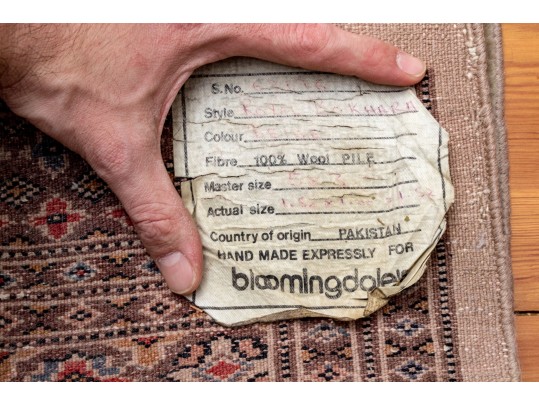 S.No.
Style
Colour
Fibre 100% Wool PILE
Master size
Actual size
Country of origin PAKISTAN
HAND MADE EXPRESSLY FOR
bloomingdale's